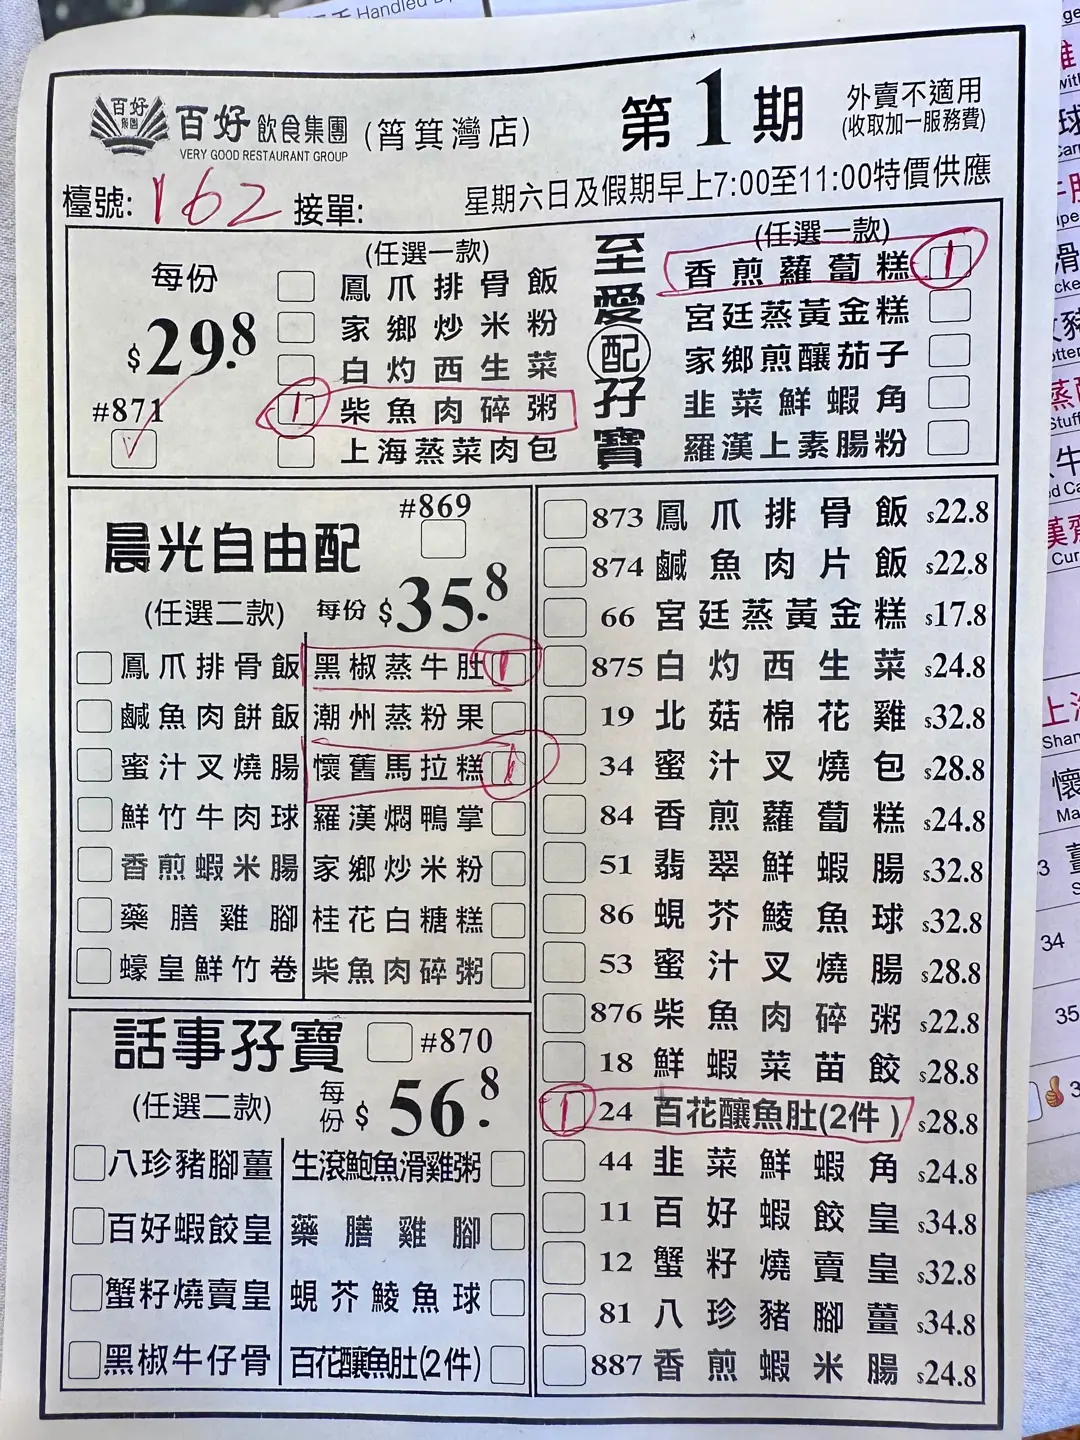 Handled
百好
飲食集團 (筲箕灣店)
VERY GOOD RESTAURANT GROUP
第1期
外賣不適用
(收取加一服務費)
檯號: 162 接單:
星期六日及假期早上7:00至11:00特價供應
每份
$29.8
#871
✓
(任選一款)
鳳爪排骨飯
家鄉炒米粉
白灼西生菜
1 柴魚肉碎粥
上海蒸菜肉包
至愛配孖寶
(任選一款)
香煎蘿蔔糕 1
宮廷蒸黃金糕
家鄉煎釀茄子
韭菜鮮蝦角
羅漢上素腸粉
晨光自由配
#869
(任選二款) 每份 $35.8
鳳爪排骨飯 黑椒蒸牛肚 1
鹹魚肉餅飯 潮州蒸粉果
蜜汁叉燒腸 懷舊馬拉糕 1
鮮竹牛肉球 羅漢燜鴨掌
香煎蝦米腸 家鄉炒米粉
藥膳雞腳 桂花白糖糕
蠔皇鮮竹卷 柴魚肉碎粥
話事孖寶 #870
(任選二款) 每份 $56.8
八珍豬腳薑 生滾鮑魚滑雞粥
百好蝦餃皇 藥膳雞腳
蟹籽燒賣皇 蜆芥鯪魚球
黑椒牛仔骨 百花釀魚肚(2件)
873 鳳爪排骨飯 $22.8
874 鹹魚肉片飯 $22.8
66 宮廷蒸黃金糕 $17.8
875 白灼西生菜 $24.8
19 北菇棉花雞 $32.8
34 蜜汁叉燒包 $28.8
84 香煎蘿蔔糕 $24.8
51 翡翠鮮蝦腸 $32.8
86 蜆芥鯪魚球 $32.8
53 蜜汁叉燒腸 $28.8
876 柴魚肉碎粥 $22.8
18 鮮蝦菜苗餃 $28.8
1 24 百花釀魚肚(2件) $28.8
44 韭菜鮮蝦角 $24.8
11 百好蝦餃皇 $34.8
12 蟹籽燒賣皇 $32.8
81 八珍豬腳薑 $34.8
887 香煎蝦米腸 $24.8
34
35